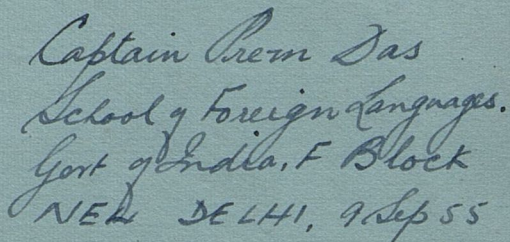 Captain Prem Das
School of Foreign Languages.
Govt of India, F Block
NEW DELHI, 9 Sep 55